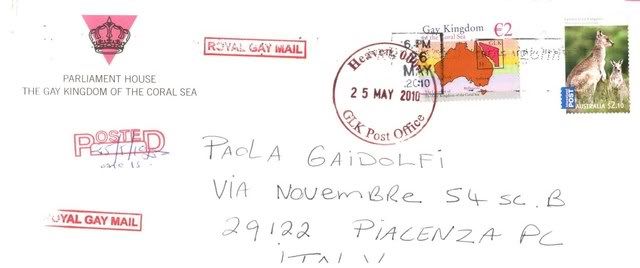 PARLIAMENT HOUSE
THE GAY KINGDOM OF THE CORAL SEA
ROYAL GAY MAIL
Gay Kingdom €2
of the Coral Sea
GLK
6 PM
6
MAY
2010
Heaven
25 MAY 2010
GLK Post Office
INTERNATIONAL POST
AUSTRALIA $2.10
POSTED
ROYAL GAY MAIL
PAOLA GAIDOLFI
VIA NOVEMBRE 54 SC. B
29122 PIACENZA PC
ITALY